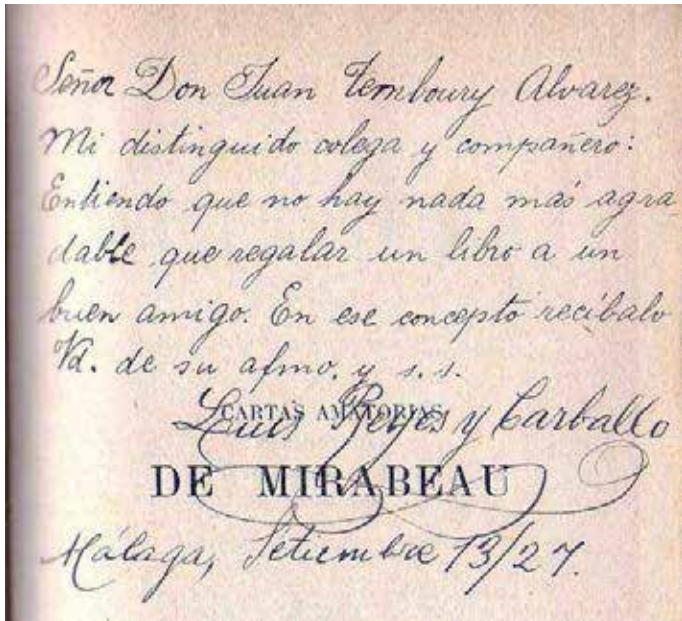 Señor Don Juan Temboury Alvarez.
Mi distinguido colega y compañero:
Entiendo que no hay nada más agra
dable que regalar un libro a un
buen amigo. En ese concepto recíbalo
Vd. de su afmo. y s.s.
Luis Reyes y Carballo
CARTAS AMATORIAS
DE MIRABEAU
Málaga, Setiembre 13/27.